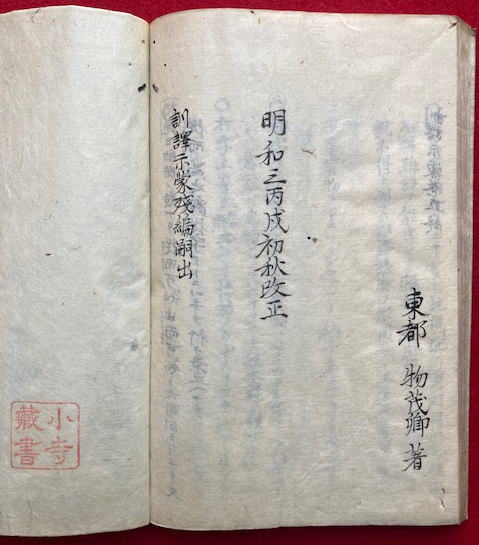 東都 物茂卿著
明和三丙戌初秋改正
訓譯示蒙殘編嗣出
小寺
藏書